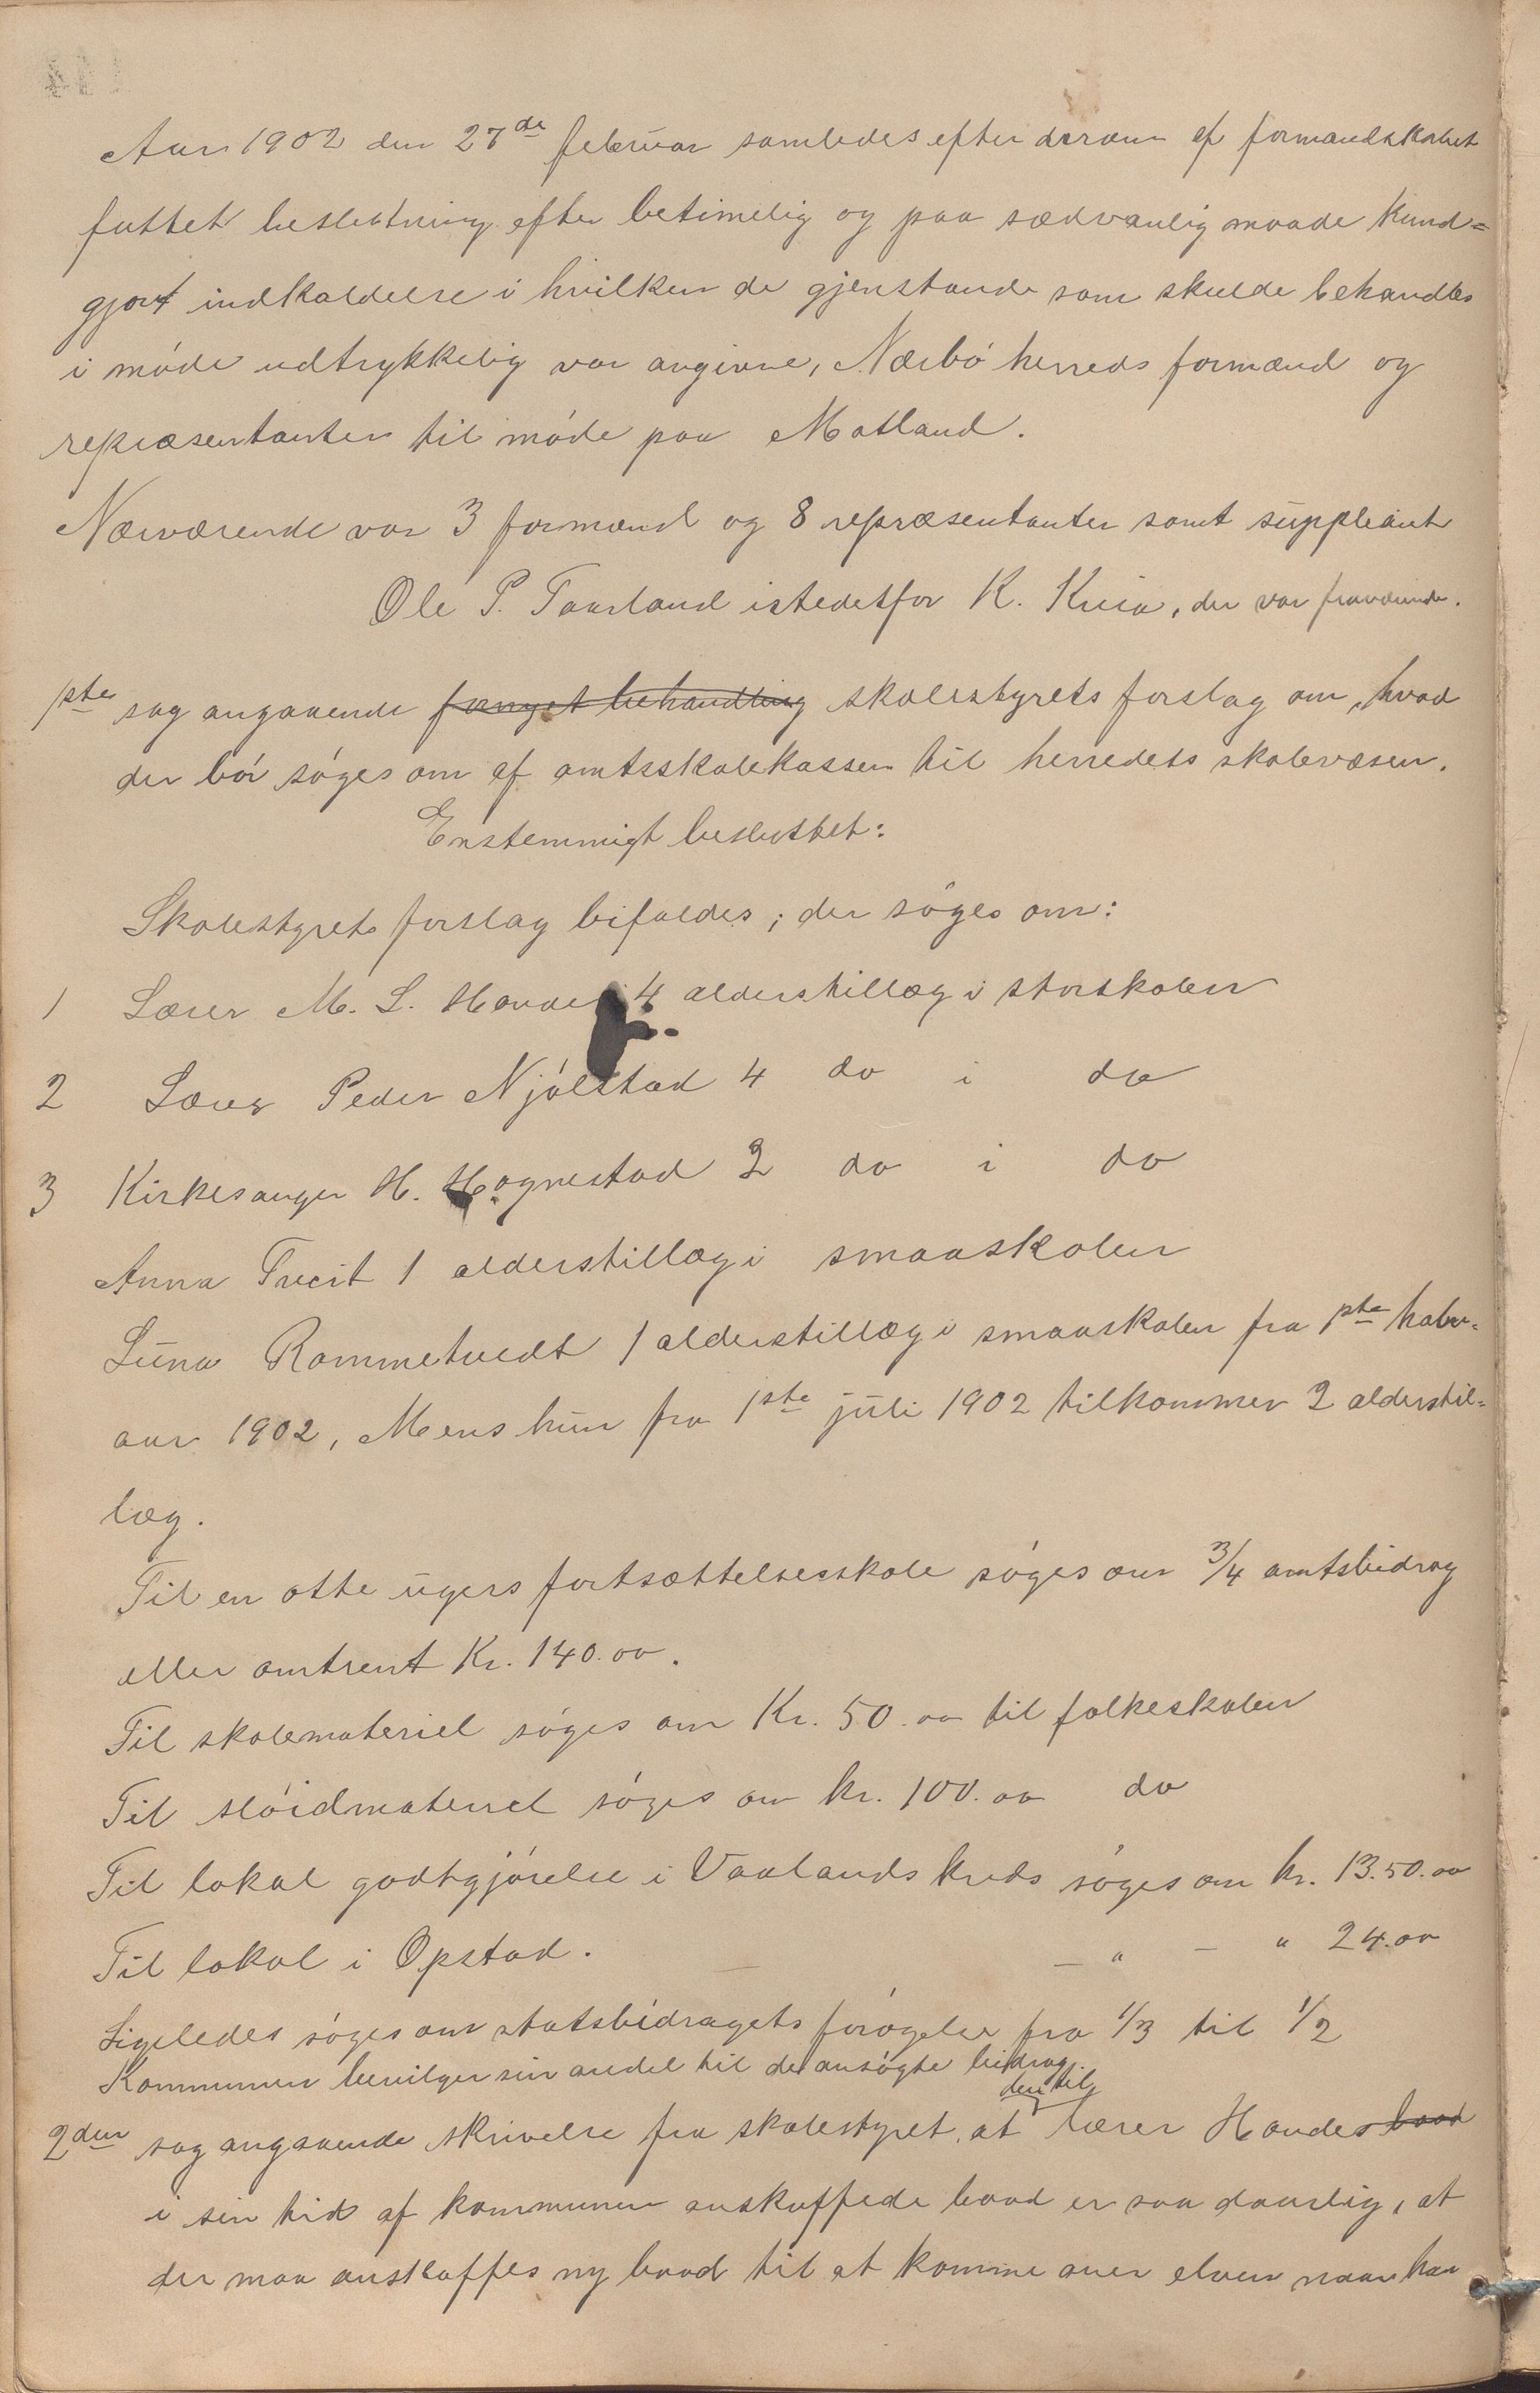 Aar 1902 den 27de februar samledes efter derom af formandskabet
fattet beslutning efter betimelig og paa sædvanlig maade kund=
gjort indkaldelse i hvilken de gjenstande som skulde behandles
i møde udtrykkelig var angivne, Nærbø herreds formænd og
repræsentanter til møde paa Motland.
Nærværende var 3 formænd og 8 repræsentanter samt suppleant
Ole P. Taarland istedetfor K. Kvia, der var fraværende.
1ste sag angaaende fornyet behandling skolestyrets forslag om, hvad
der bør søges om af amtsskolekassen til herredets skolevæsen.
Enstemmigt besluttet:
Skolestyrets forslag bifaldes; der søges om:
1 Lærer M. L. Haude 4 alderstillæg i storskolen
2 Lærer Peder Njølstad 4 do i do
3 Kirkesanger H. Hognestad 2 do i do
Anna Tveit 1 alderstillæg i smaaskolen
Lina Rommetvedt 1 alderstillæg i smaaskolen fra 1ste halv=
aar 1902, Mens hun fra 1ste juli 1902 tilkommer 2 alderstil=
læg.
Til en otte ugers fortsættelsesskole søges om 3/4 amtsbidrag
eller omtrent Kr. 140.00.
Til skolemateriel søges om Kr. 50.00 til folkeskolen
Til sløidmateriel søges om kr. 100.00 do
Til lokal godtgjørelse i Vaalands kreds søges om kr. 13.50.00
Til lokal i Opstad. — " — " 24.00
Ligeledes søges om statsbidragets forøgelse fra 1/3 til 1/2
Kommunen bevilger sin andel til de ansøgte bidrag.
den til
2den sag angaaende skrivelse fra skolestyret, at lærer Haudes baad
i sin tid af kommunen anskaffede baad er saa daarlig, at
der maa anskaffes ny baad til at komme over elven naar han